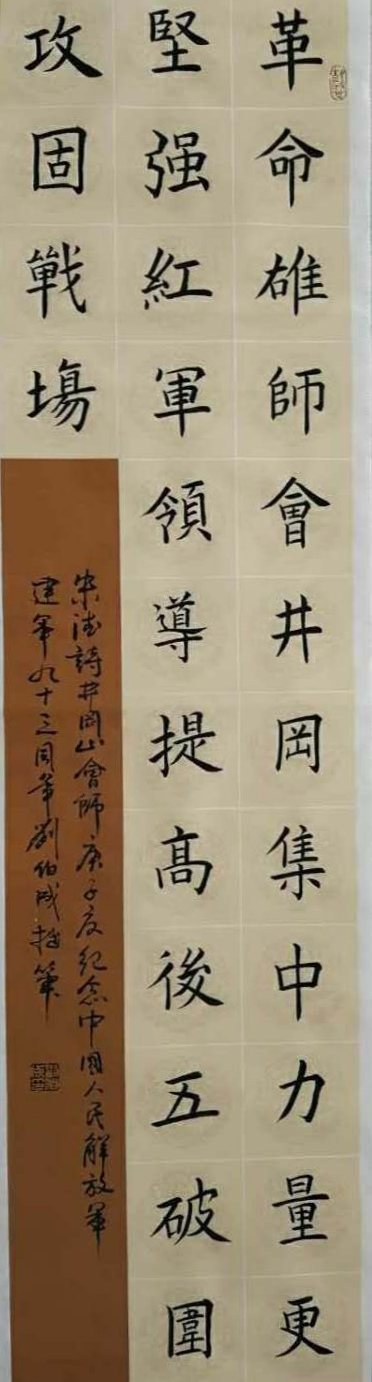 革命雄師會井岡集中力量更
堅强紅軍領導提高後五破圍
攻固戰場
朱德詩井岡山會師庚子夏纪念中國人民解放軍
建軍九十三周年劉伯成抄筆